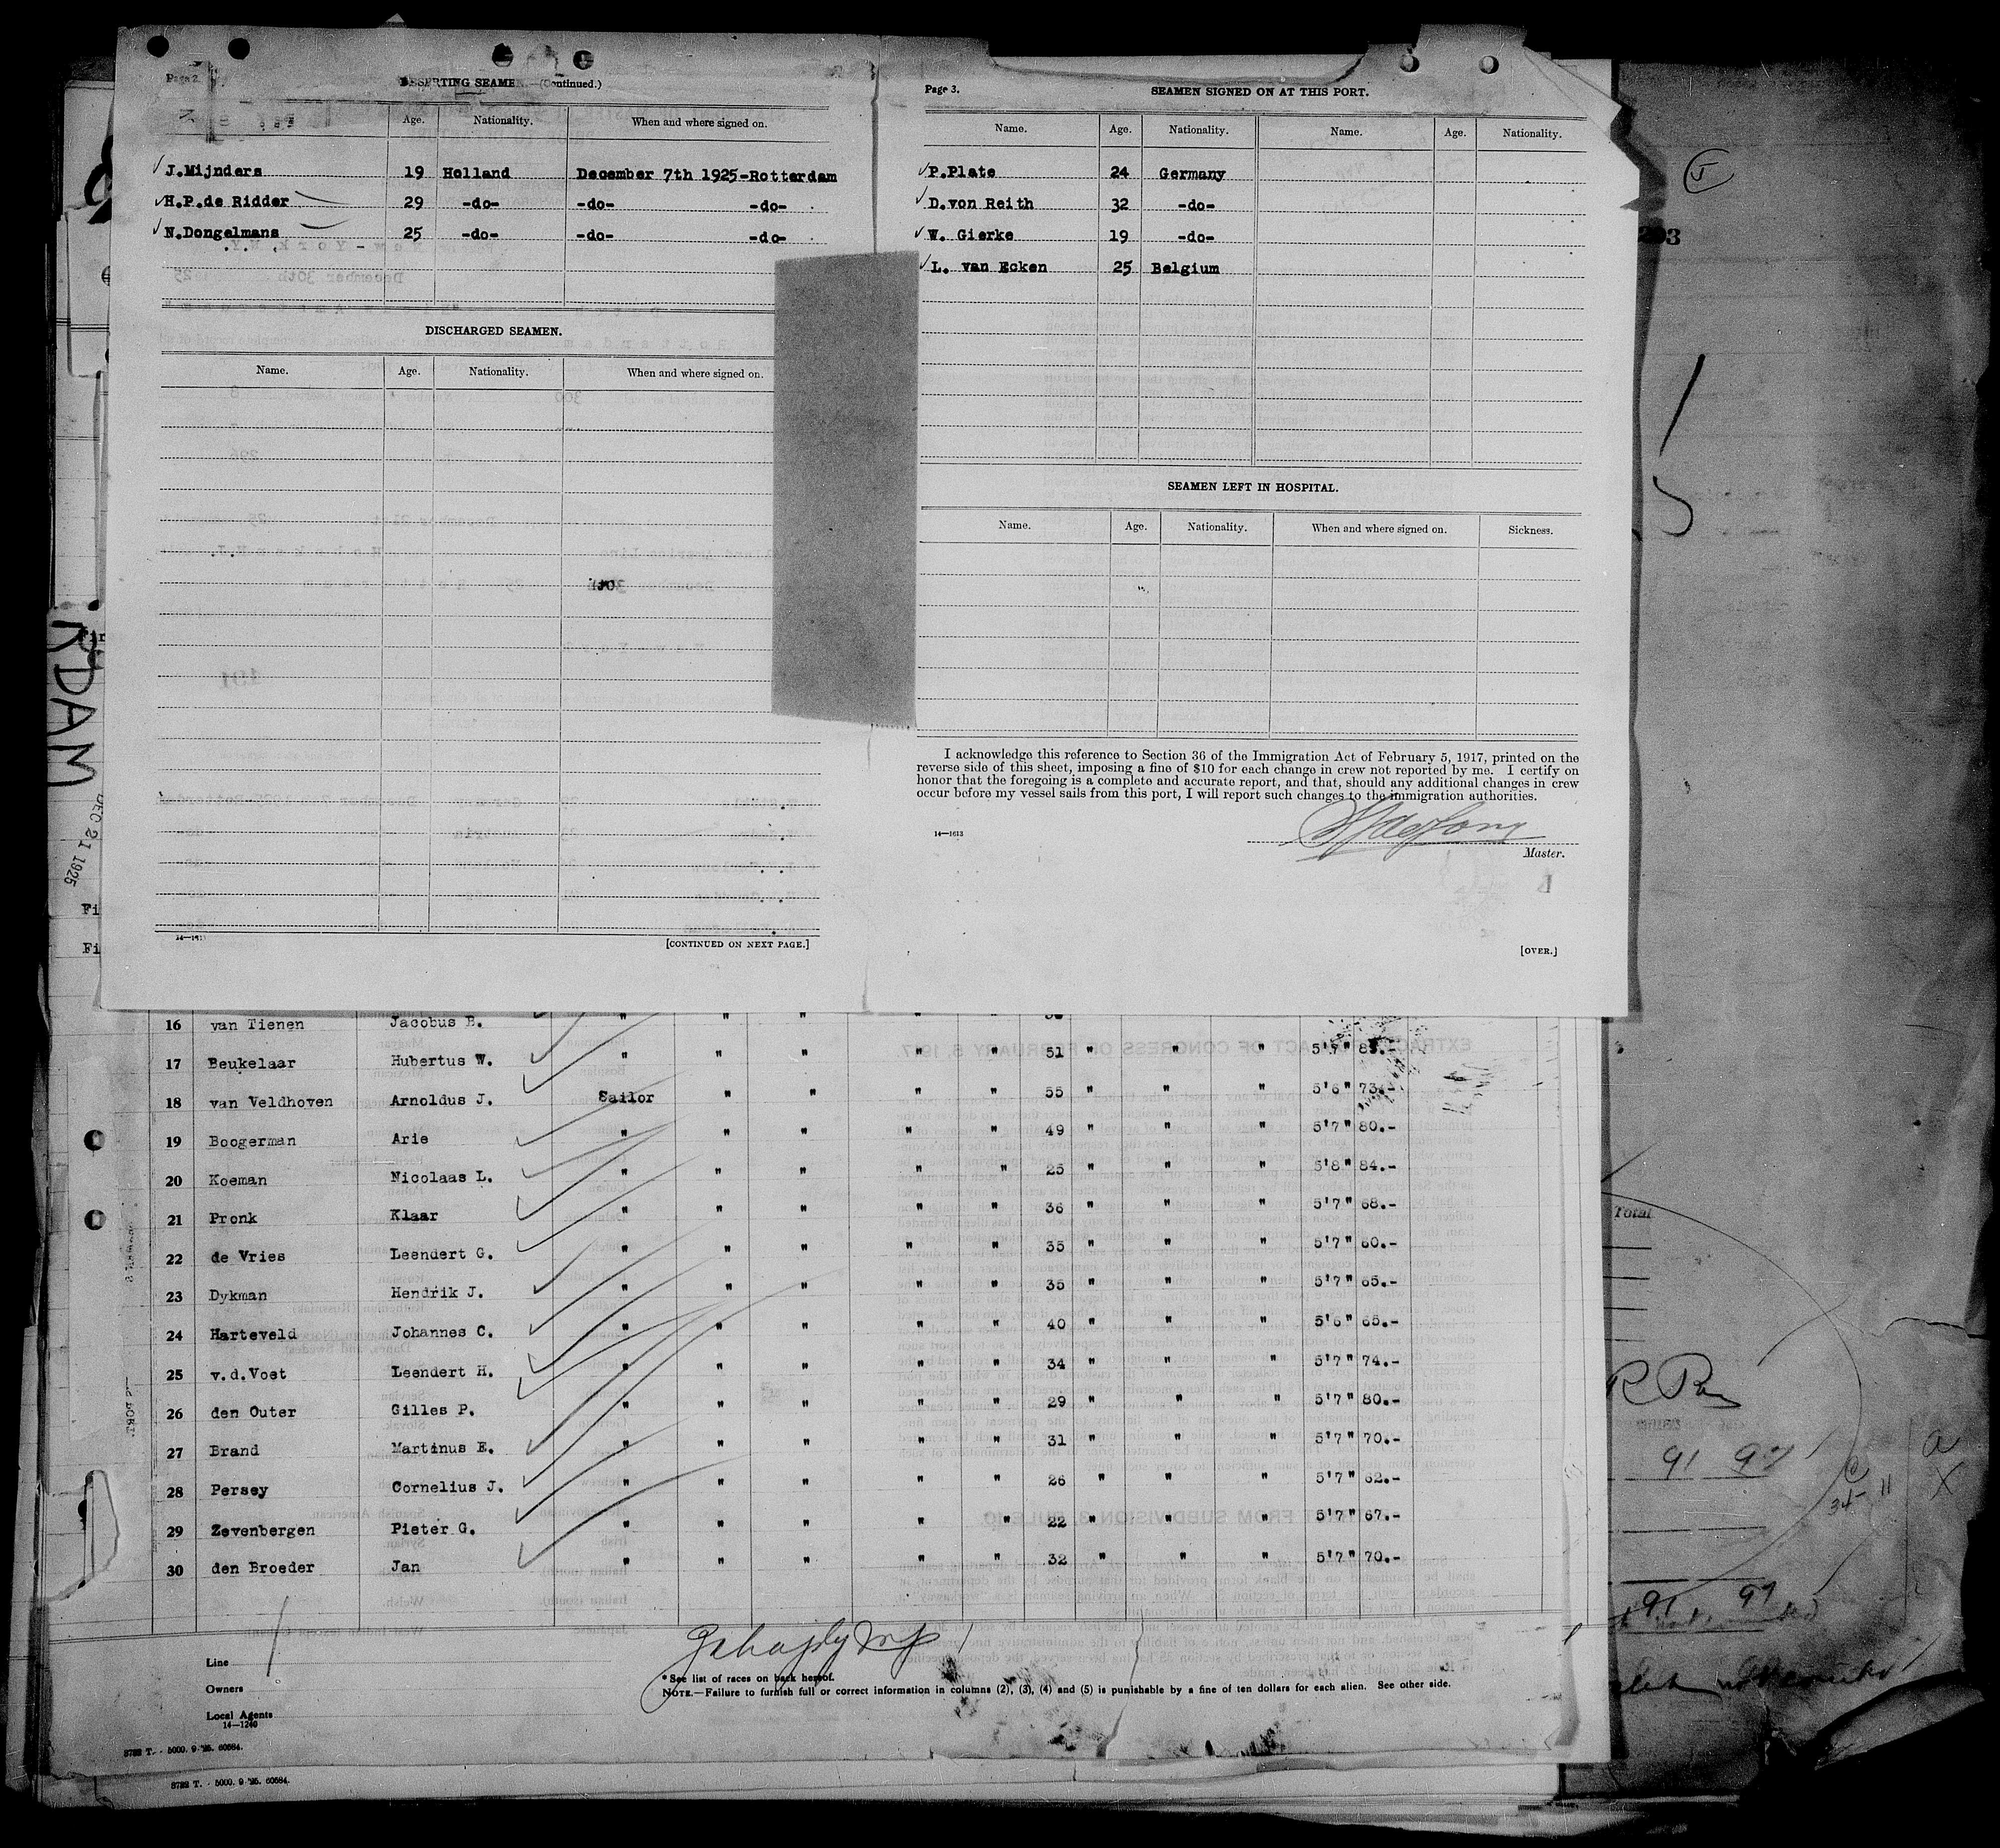 Page 2.
DESERTING SEAMEN.—(Continued.)
Age. Nationality. When and where signed on.
J.Mijnders 19 Holland December 7th 1925-Rotterdam
H.P.de Ridder 29 -do- -do- -do-
N.Dongelmans 25 -do- -do- -do-
DISCHARGED SEAMEN.
Name. Age. Nationality. When and where signed on.
[CONTINUED ON NEXT PAGE.]
Page 3.
SEAMEN SIGNED ON AT THIS PORT.
Name. Age. Nationality. Name. Age. Nationality.
P.Plate 24 Germany
D.von Reith 32 -do-
W. Gierke 19 -do-
L. van Ecken 25 Belgium
SEAMEN LEFT IN HOSPITAL.
Name. Age. Nationality. When and where signed on. Sickness.
I acknowledge this reference to Section 36 of the Immigration Act of February 5, 1917, printed on the
reverse side of this sheet, imposing a fine of $10 for each change in crew not reported by me. I certify on
honor that the foregoing is a complete and accurate report, and that, should any additional changes in crew
occur before my vessel sails from this port, I will report such changes to the immigration authorities.
14—1613
Master.
[OVER.]
RDAM
DEC 21 1925
16 van Tienen Jacobus B. " " " " "
17 Beukelaar Hubertus W. " " " " " 51 " " " 5'7"
18 van Veldhoven Arnoldus J. Sailor " " " " 55 " " " 5'6" 73.-
19 Boogerman Arie " " " " " 49 " " " 5'7" 80.-
20 Koeman Nicolaas L. " " " " " 25 " " " 5'8" 84.-
21 Pronk Klaar " " " " " 36 " " " 5'7" 68.-
22 de Vries Leendert G. " " " " " 35 " " " 5'7" 60.-
23 Dykman Hendrik J. " " " " " 35 " " " 5'7" 65.-
24 Harteveld Johannes C. " " " " " 40 " " " 5'6" 65.-
25 v.d.Vost Leendert H. " " " " " 34 " " " 5'7" 74.-
26 den Outer Gilles P. " " " " " 29 " " " 5'7" 80.-
27 Brand Martinus E. " " " " " 31 " " " 5'7" 70.-
28 Persey Cornelius J. " " " " " 26 " " " 5'7" 62.-
29 Zevenbergen Pieter G. " " " " " 22 " " " 5'7" 67.-
30 den Broeder Jan " " " " " 32 " " " 5'7" 70.-
Line
Owners
Local Agents
14—1240
* See list of races on back hereof.
NOTE.—Failure to furnish full or correct information in columns (2), (3), (4) and (5) is punishable by a fine of ten dollars for each alien. See other side.
8722 T. - 5000. 9-'25. 60584.
8722 T. - 5000. 9-'25. 60584.
Total
91 97
34-11
91 97